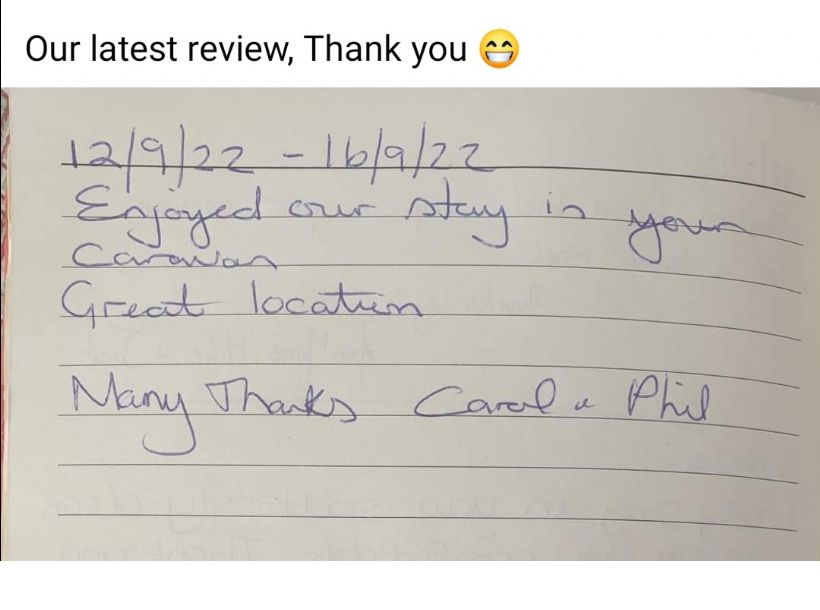 Our latest review, Thank you 😁
12/9/22 - 16/9/22
Enjoyed our stay in your
Caravan
Great location
Many Thanks Carol & Phil